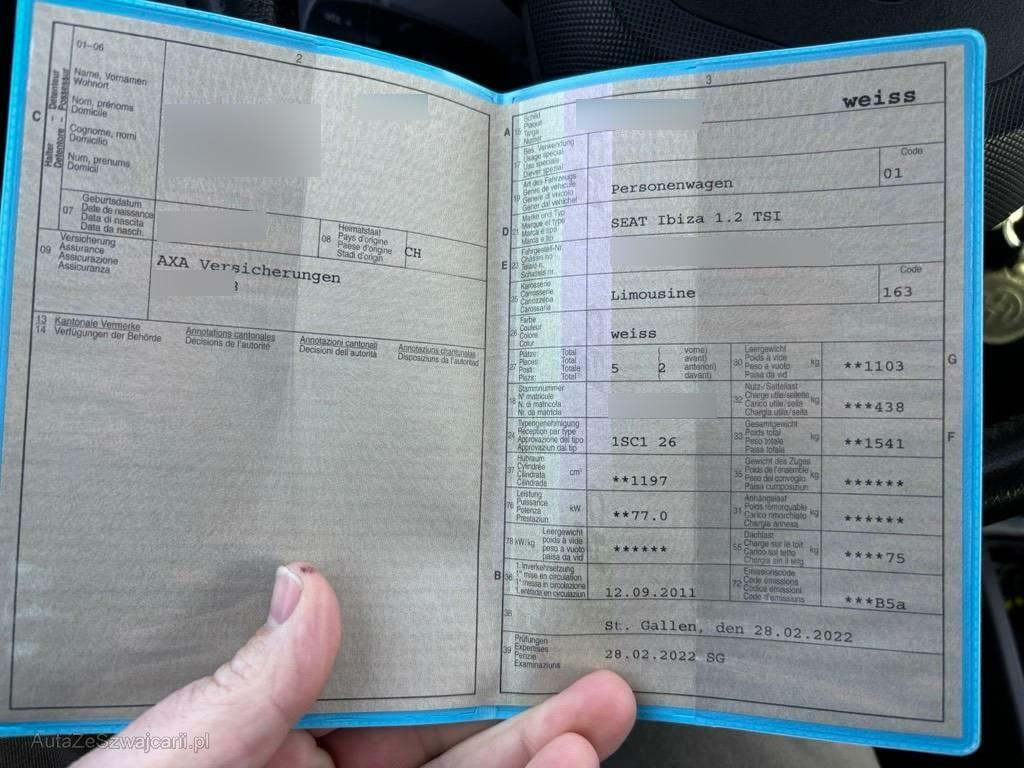 2
01-06
Name, Vornamen
Wohnort
Nom, prénoms
Domicile
Cognome, nomi
Domicilio
Num, prenums
Domicil
C
Halter - Détenteur
Detentore - Possessur
07
Geburtsdatum
Date de naissance
Data di nascita
Data da nasch.
08
Heimatstaat
Pays d'origine
Paese d'origine
Stadi d'origin
CH
09
Versicherung
Assurance
Assicurazione
Assicuranza
AXA Versicherungen
13
14
Kantonale Vermerke
Verfügungen der Behörde
Annotations cantonales
Décisions de l'autorité
Annotazioni cantonali
Decisioni dell'autorità
Annotaziuns chantunalas
Disposiziuns da l'autoritad
3
weiss
A
15
Schild
Plaque
Targa
Numer
17
Bes. Verwendung
Usage spécial
Uso speciale
Diever spezial
19
Art des Fahrzeugs
Genre de véhicule
Genere di veicolo
Gener dal vehichel
Personenwagen
Code
01
D
21
Marke und Typ
Marque et type
Marca e tipo
Marca e tip
SEAT Ibiza 1.2 TSI
E
23
Fahrgestell-Nr.
Châssis no
Telaio n.
Schassis nr.
25
Karosserie
Carrosserie
Carrozzeria
Carossaria
Limousine
Code
163
26
Farbe
Couleur
Colore
Colur
weiss
27
Plätze: Total
Places: Total
Posti: Totale
Plazs: Total
5
2
vorne)
avant)
anteriori)
davant)
30
Leergewicht
Poids à vide
Peso a vuoto
Paisa da vid
kg
**1103
G
18
Stammnummer
N° matricule
N. di matricola
Nr. da matricla
32
Nutz-/Sattellast
Charge utile/sellette
Carico utile/sella
Chargia utila/sella
kg
***438
24
Typengenehmigung
Réception par type
Approvazione del tipo
Approvaziun dal tip
1SC1 26
33
Gesamtgewicht
Poids total
Peso totale
Paisa totala
kg
**1541
F
37
Hubraum
Cylindrée
Cilindrata
Cilindrada
cm³
**1197
35
Gewicht des Zuges
Poids de l'ensemble
Peso del convoglio
Paisa cumposiziun
kg
******
76
Leistung
Puissance
Potenza
Prestaziun
kW
**77.0
31
Anhängelast
Poids remorquable
Carico rimorchiato
Chargia annexa
kg
******
78 kW/kg
Leergewicht
poids à vide
peso a vuoto
paisa da vid
******
55
Dachlast
Charge sur le toit
Carico sul tetto
Chargia sin il tetg
kg
****75
B
36
1. Inverkehrsetzung
1re mise en circulation
1a messa in circolazione
1. entrada en circulaziun
12.09.2011
72
Emissionscode
Code émissions
Codice emissioni
Code d'emissiuns
***B5a
38
St. Gallen, den 28.02.2022
39
Prüfungen
Expertises
Perizie
Examinaziuns
28.02.2022 SG
AutaZeSzwajcarii.pl